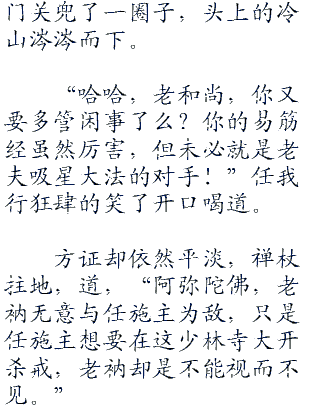 门关兜了一圈子，头上的冷
山涔涔而下。
“哈哈，老和尚，你又
要多管闲事了么？你的易筋
经虽然厉害，但未必就是老
夫吸星大法的对手！”任我
行狂肆的笑了开口喝道。
方证却依然平淡，禅杖
拄地，道，“阿弥陀佛，老
衲无意与任施主为敌，只是
任施主想要在这少林寺大开
杀戒，老衲却是不能视而不
见。”